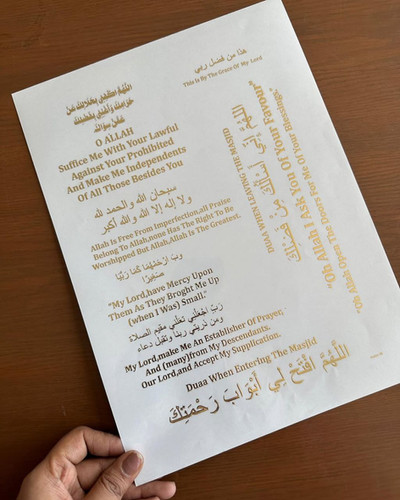 هذا من فضل ربي
This Is By The Grace Of My Lord
اللهم اكفني بحلالك عن
حرامك وأغنني بفضلك
عمن سواك
O ALLAH
Suffice Me With Your Lawful
Against Your Prohibited
And Make Me Independents
Of All Those Besides You
سبحان الله والحمد لله
ولا إله إلا الله والله أكبر
Allah Is Free From Imperfection,all Praise
Belong To Allah,none Has The Right To Be
Worshipped But Allah,Allah Is The Greatest.
رب ارحمهما كما ربيا
صغيرا
"My Lord,have Mercy Upon
Them As They Broght Me Up
(when I Was) Small."
رب اجعلني مقيم الصلاة
ومن ذريتي ربنا وتقبل دعاء
My Lord,make Me An Establisher Of Prayer,
And (many)from My Descendants.
Our Lord,and Accept My Supplication.
Duaa When Entering The Masjid
اللَّهُمَّ افْتَحْ لِي أَبْوَابَ رَحْمَتِكَ
DUAA WHEN LEAVING THE MASJID
اللَّهُمَّ إِنِّي أَسْأَلُكَ مِنْ فَضْلِكَ
"Oh Allah I Ask You Of Your Favour"
"Oh Allah Open The Doors For Me Of Your Blessings."